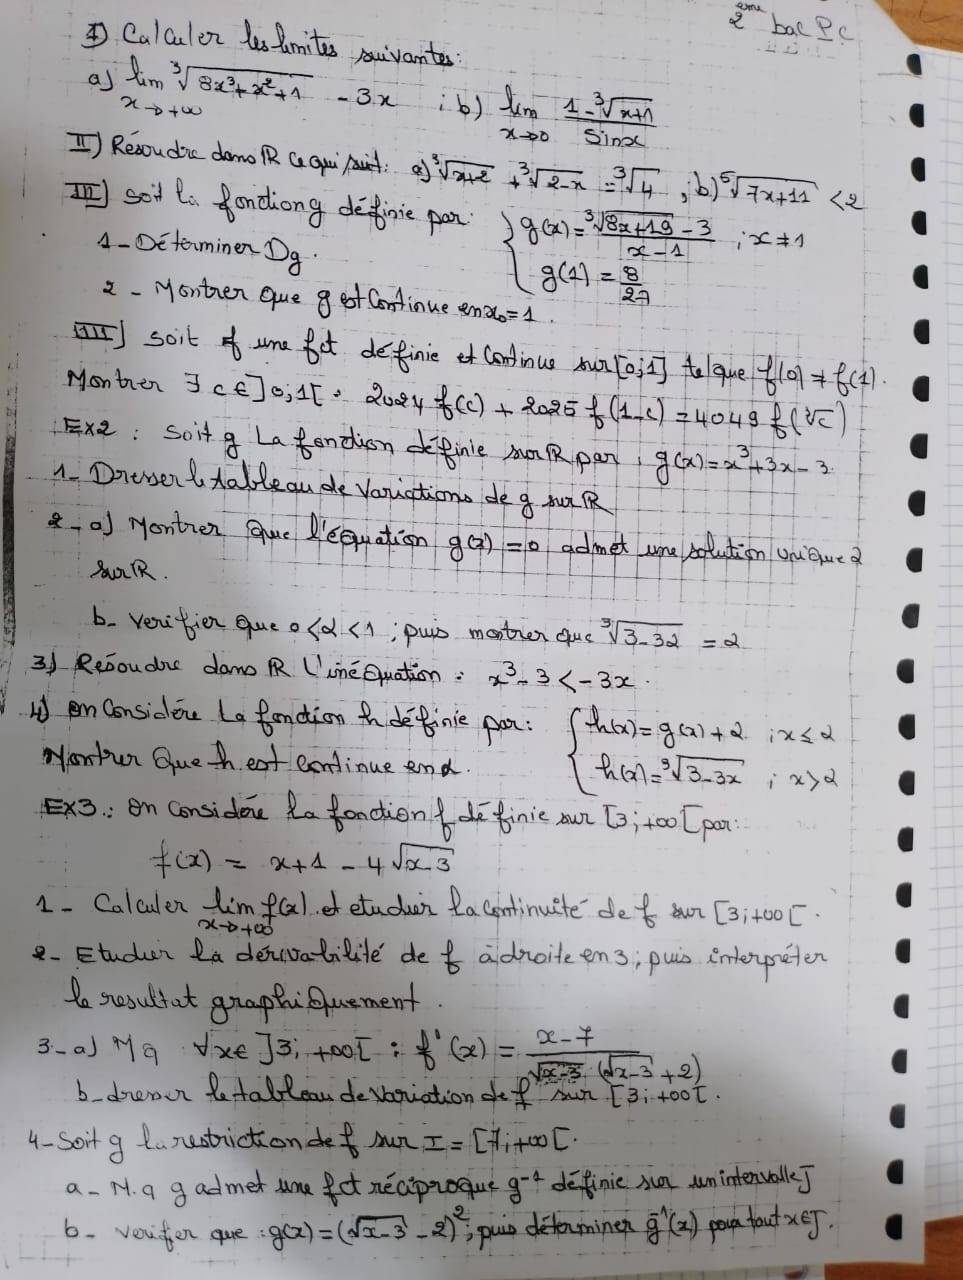 2ème bac P.C
I) Calculer les limites suivantes:
a) lim x→+∞ ∛(8x³+x²+1) - 3x ; b) lim x→0 (1-∛(x+1))/Sinx
II) Résoudre dans IR ce qui suit: a) ∛(x+2) + ∛(2-x) = ∛4 , b) ⁵√(7x+11) < 2
III) soit la fonction g définie par: { g(x) = (∛(8x+19) - 3)/(x-1) ; x≠1
{ g(1) = 8/27
1- Déterminer Dg.
2- Montrer que g est Continue en x₀=1.
IIII) soit f une fct définie et Continue sur [0;1] telque f(0) ≠ f(1).
Montrer ∃ c ∈ ]0;1[ : 2024 f(c) + 2025 f(1-c) = 4049 f(∛c)
Ex2 : Soit g La fonction définie sur IR par : g(x) = x³+3x-3.
1- Dresser le tableau de variations de g sur IR
2- a) Montrer que l'équation g(x)=0 admet une solution unique α
sur IR.
b- verifier que 0<α<1 ; puis montrer que ∛(3-3α) = α
3) Résoudre dans IR L'inéquation : x³-3 < -3x.
4) on Considère La fonction h définie par: { h(x) = g(x)+α ; x ≤ α
{ h(x) = ∛(3-3x) ; x > α
Montrer que h est continue en α.
EX3 : on considère la fonction f définie sur [3;+∞[ par:
f(x) = x+1 - 4√(x-3)
1- Calculer lim x→+∞ f(x). et etudier la continuité de f sur [3;+∞[.
2- Etudier la dérivabilité de f à droite en 3; puis interpréter
le resultat graphiquement.
3-a) Mq ∀x∈ ]3;+∞[ : f'(x) = (x-7)/(√(x-3) (√(x-3)+2))
b-dresser le tableau de variation de f sur [3;+∞[.
4-Soit g la restriction de f sur I = [7;+∞[.
a- M.q g admet une fct réciproque g⁻¹ définie sur un intervalle J
b- verifer que : g(x) = (√(x-3) - 2)²; puis déterminer g⁻¹(x) pour tout x∈J.